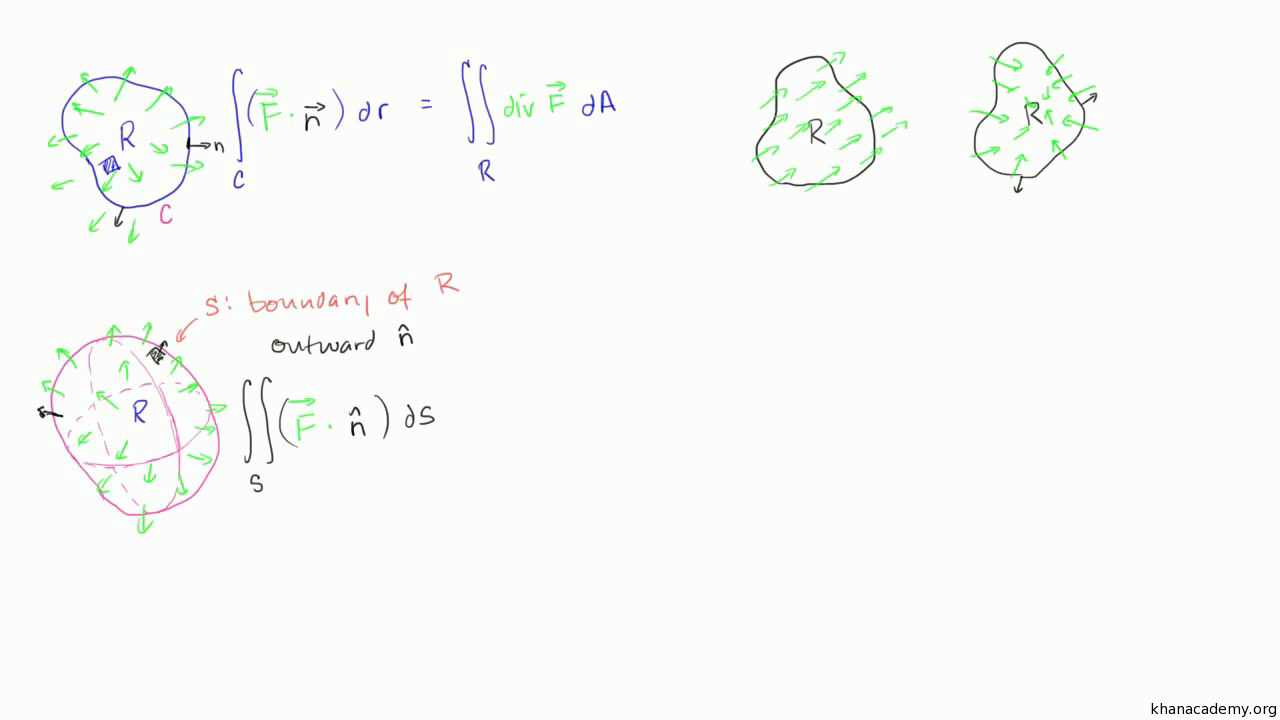 R
n
C
∫_C (F⃗ · n⃗) dr = ∬_R div F⃗ dA
R
R
S: boundary of R
outward n̂
R
∬_S (F⃗ · n̂) dS
khanacademy.org